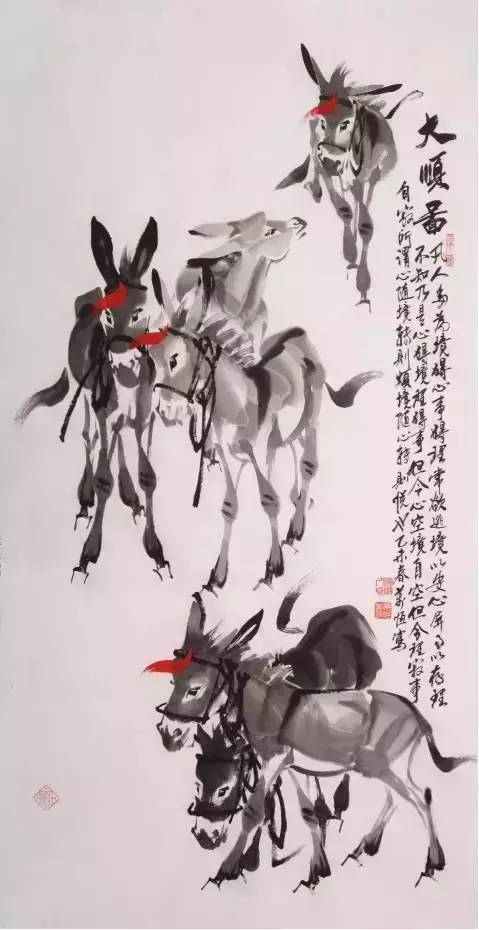 大順啚
凡人多為境碍心事碍理常欲逃境以安心屏事以存理
不知乃是心碍境理碍事但令心空境自空但令理寂事
自寂所謂心随境轉則煩境随心轉則悦也乙未春恒寫